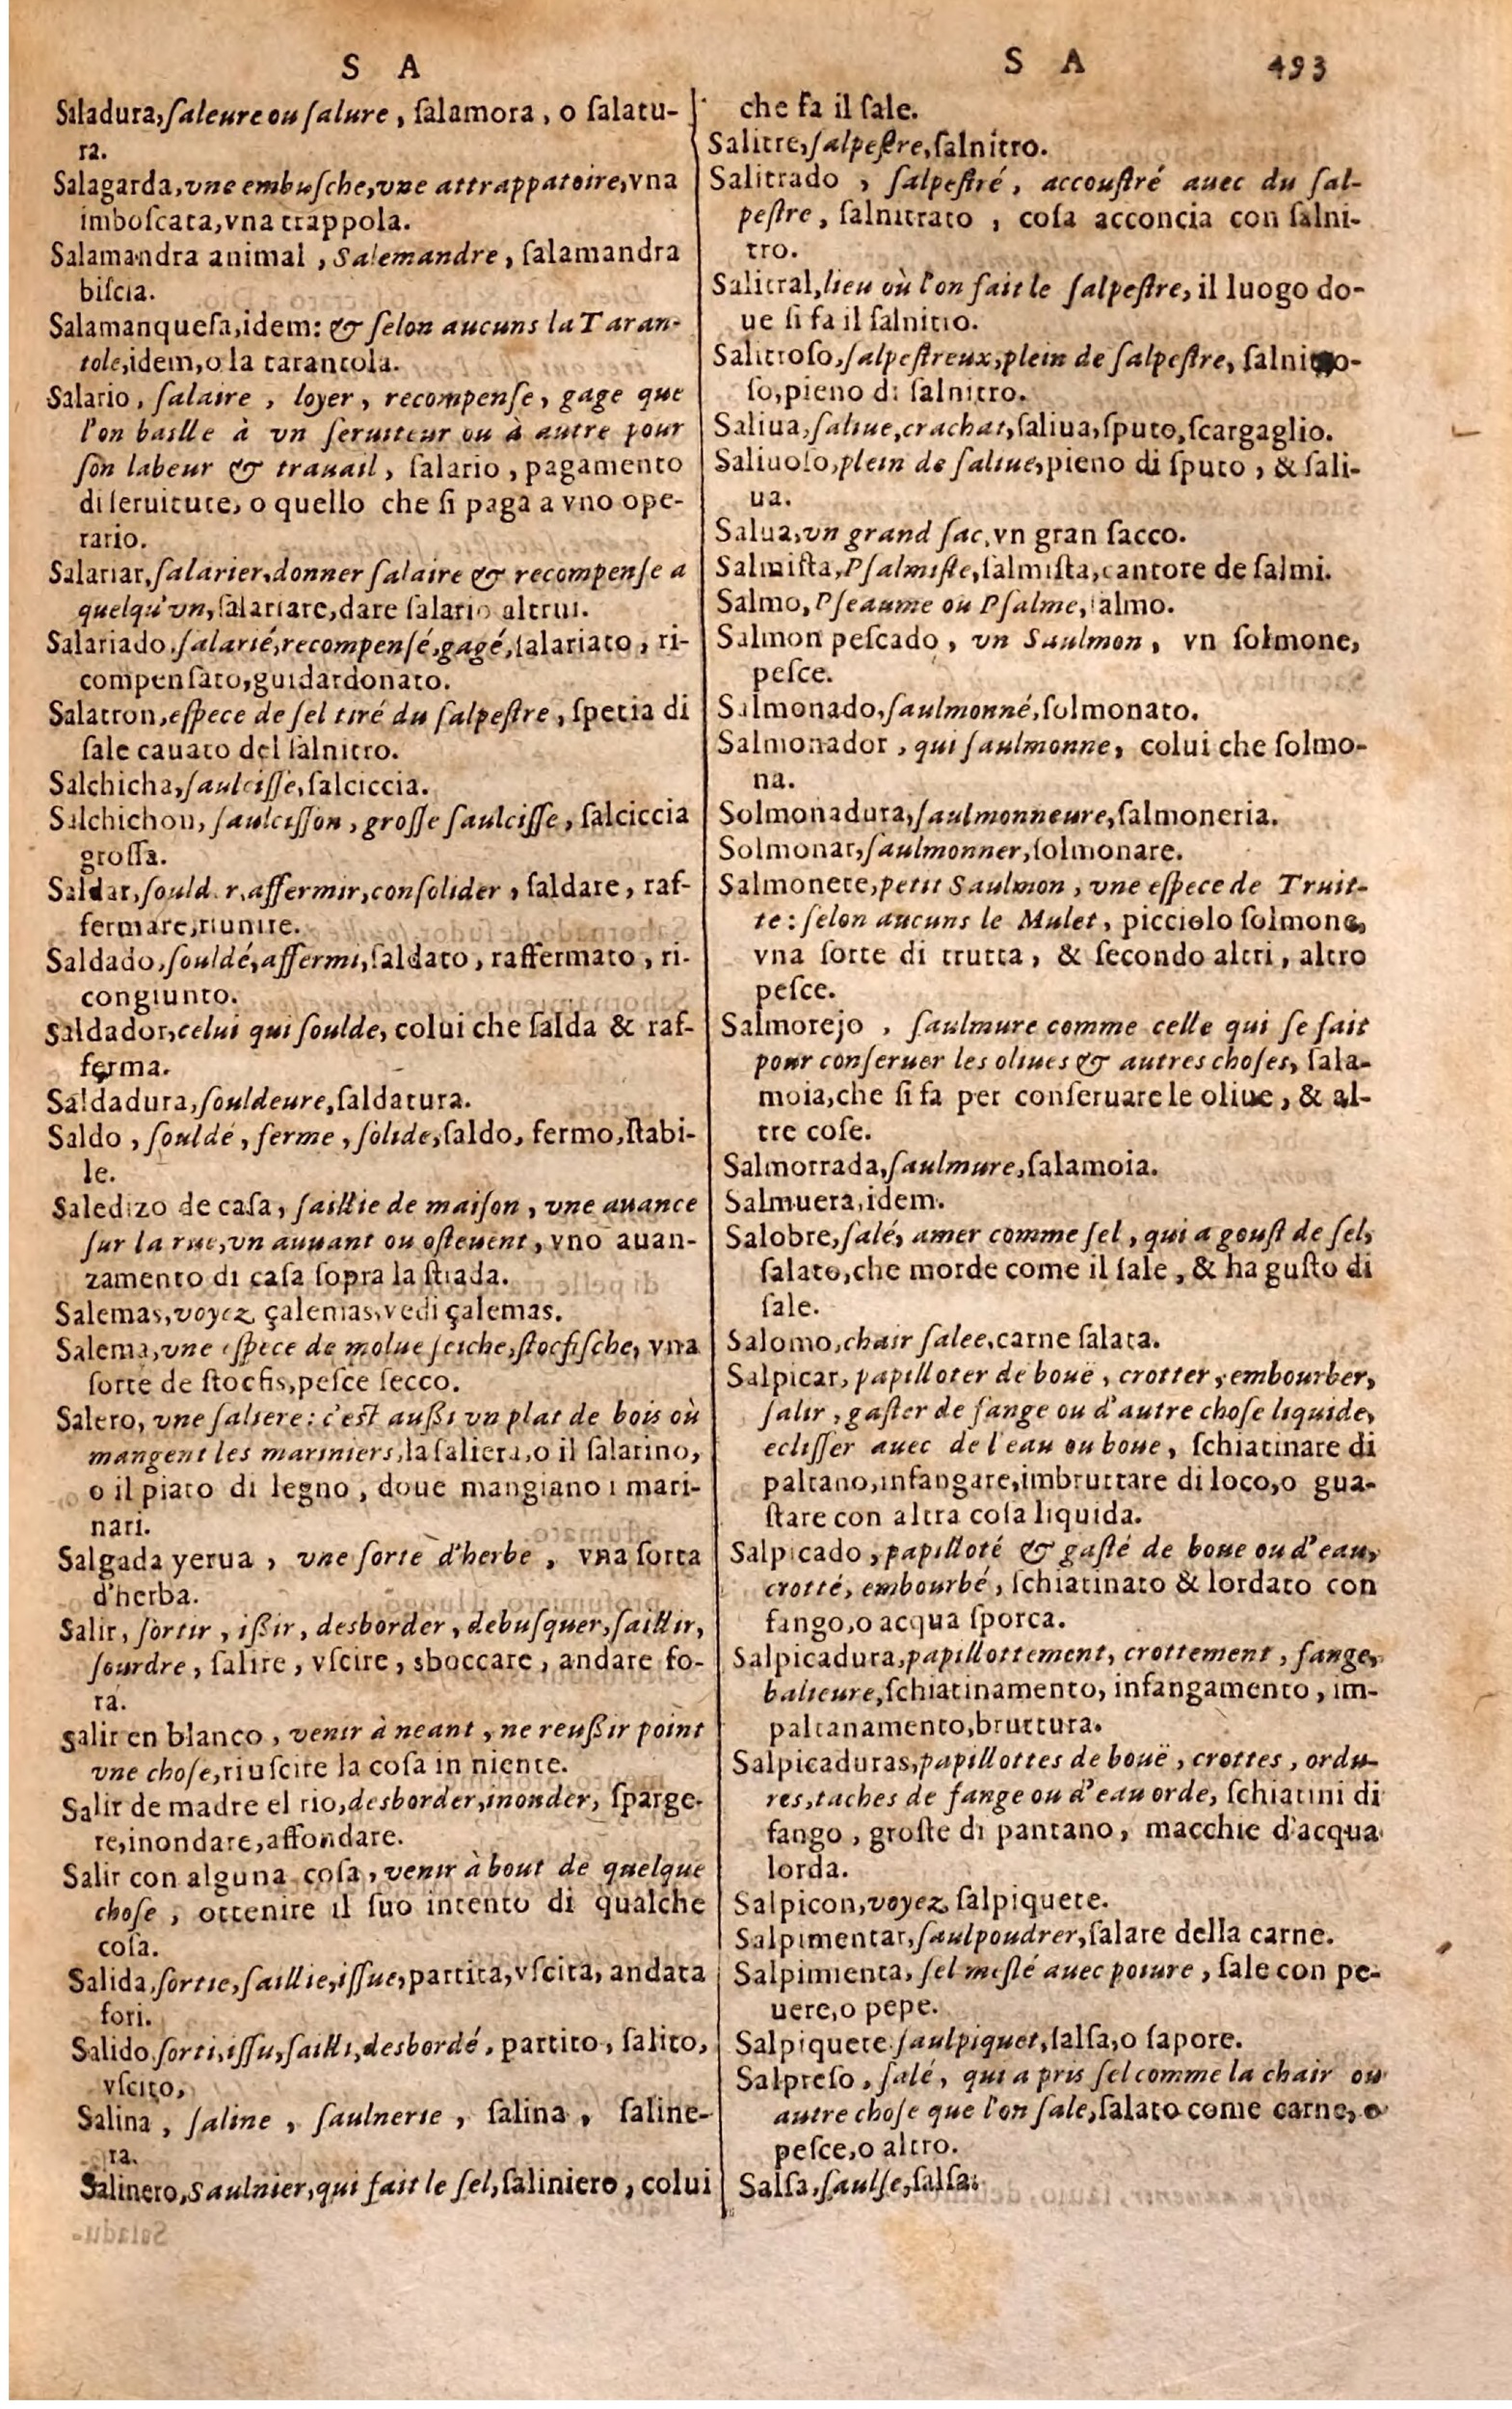 S A
Saladura, ſaleure ou ſalure, ſalamora, o ſalatu-
ra.
Salagarda, vne embuſche, vne attrappatoire, vna
imboſcata, vna trappola.
Salamandra animal, Salemandre, ſalamandra
biſcia.
Salamanqueſa, idem: & ſelon aucuns la Taran-
tole, idem, o la tarantola.
Salario, ſalaire, loyer, recompenſe, gage que
l'on baille à vn ſeruiteur ou à autre pour
ſon labeur & trauail, ſalario, pagamento
di ſeruitute, o quello che ſi paga a vno ope-
rario.
Salariar, ſalarier, donner ſalaire & recompenſe a
quelqu'vn, ſalariare, dare ſalario altrui.
Salariado, ſalarié, recompenſé, gagé, ſalariato, ri-
compenſato, guidardonato.
Salatron, eſpece de ſel tiré du ſalpeſtre, ſpetia di
ſale cauato del ſalnitro.
Salchicha, ſaulciſſe, ſalciccia.
Salchichon, ſaulciſſon, groſſe ſaulciſſe, ſalciccia
groſſa.
Saldar, ſoulder, affermir, conſolider, ſaldare, raf-
fermare, riunire.
Saldado, ſouldé, affermi, ſaldato, raffermato, ri-
congiunto.
Saldador, celui qui ſoulde, colui che ſalda & raf-
ferma.
Saldadura, ſouldeure, ſaldatura.
Saldo, ſouldé, ferme, ſolide, ſaldo, fermo, ſtabi-
le.
Saledizo de caſa, ſaillie de maiſon, vne auance
ſur la rue, vn auuant ou oſteuent, vno auan-
zamento di caſa ſopra la ſtrada.
Salemas, voyez çalemas, vedi çalemas.
Salema, vne eſpece de molue ſeiche, ſtocfiſche, vna
ſorte de ſtocfis, peſce ſecco.
Salero, vne ſaliere: c'eſt auſſi vn plat de bois où
mangent les mariniers, la ſaliera, o il ſalarino,
o il piato di legno, doue mangiano i mari-
nari.
Salgada yerua, vne ſorte d'herbe, vna ſorta
d'herba.
Salir, ſortir, iſſir, desborder, debuſquer, ſaillir,
ſourdre, ſalire, vſcire, sboccare, andare fo-
ra.
Salir en blanco, venir à neant, ne reuſſir point
vne choſe, riuſcire la coſa in niente.
Salir de madre el rio, desborder, inonder, ſparge-
re, inondare, affondare.
Salir con alguna coſa, venir à bout de quelque
choſe, ottenire il ſuo intento di qualche
coſa.
Salida, ſortie, ſaillie, iſſue, partita, vſcita, andata
fori.
Salido, ſorti, iſſu, ſailli, desbordé, partito, ſalito,
vſcito,
Salina, ſaline, ſaulnerie, ſalina, ſaline-
ra.
Salinero, Saulnier, qui fait le ſel, ſaliniero, colui
S A 493
che fa il ſale.
Salitre, ſalpeſtre, ſalnitro.
Salitrado, ſalpeſtré, accouſtré auec du ſal-
peſtre, ſalnitrato, coſa acconcia con ſalni-
tro.
Salitral, lieu où l'on fait le ſalpeſtre, il luogo do-
ue ſi fa il ſalnitro.
Salitroſo, ſalpeſtreux, plein de ſalpeſtre, ſalnitro-
ſo, pieno di ſalnitro.
Saliua, ſaliue, crachat, ſaliua, ſputo, ſcargaglio.
Saliuoſo, plein de ſaliue, pieno di ſputo, & ſali-
ua.
Salua, vn grand ſac, vn gran ſacco.
Salmiſta, Pſalmiſte, ſalmiſta, cantore de ſalmi.
Salmo, Pſeaume ou Pſalme, ſalmo.
Salmon peſcado, vn Saulmon, vn ſolmone,
peſce.
Salmonado, ſaulmonné, ſolmonato.
Salmonador, qui ſaulmonne, colui che ſolmo-
na.
Solmonadura, ſaulmonneure, ſalmoneria.
Solmonar, ſaulmonner, ſolmonare.
Salmonete, petit Saulmon, vne eſpece de Truit-
te: ſelon aucuns le Mulet, picciolo ſolmone,
vna ſorte di trutta, & ſecondo altri, altro
peſce.
Salmorejo, ſaulmure comme celle qui ſe fait
pour conſeruer les oliues & autres choſes, ſala-
moia, che ſi fa per conſeruare le oliue, & al-
tre coſe.
Salmorrada, ſaulmure, ſalamoia.
Salmuera, idem.
Salobre, ſalé, amer comme ſel, qui a gouſt de ſel,
ſalato, che morde come il ſale, & ha guſto di
ſale.
Salomo, chair ſalee, carne ſalata.
Salpicar, papilloter de bouë, crotter, embourber,
ſalir, gaſter de fange ou d'autre choſe liquide,
ecliſſer auec de l'eau ou boue, ſchiatinare di
paltano, infangare, imbruttare di loco, o gua-
ſtare con altra coſa liquida.
Salpicado, papilloté & gaſté de boue ou d'eau,
crotté, embourbé, ſchiatinato & lordato con
fango, o acqua ſporca.
Salpicadura, papillottement, crottement, fange,
balieure, ſchiatinamento, infangamento, im-
paltanamento, bruttura.
Salpicaduras, papillottes de bouë, crottes, ordu-
res, taches de fange ou d'eau orde, ſchiatini di
fango, groſte di pantano, macchie d'acqua
lorda.
Salpicon, voyez ſalpiquete.
Salpimentar, ſaulpoudrer, ſalare della carne.
Salpimienta, ſel meſlé auec poiure, ſale con pe-
uere, o pepe.
Salpiquete ſaulpiquet, ſalſa, o ſapore.
Salpreſo, ſalé, qui a pris ſel comme la chair ou
autre choſe que l'on ſale, ſalato come carne, o
peſce, o altro.
Salſa, ſaulſe, ſalſa.